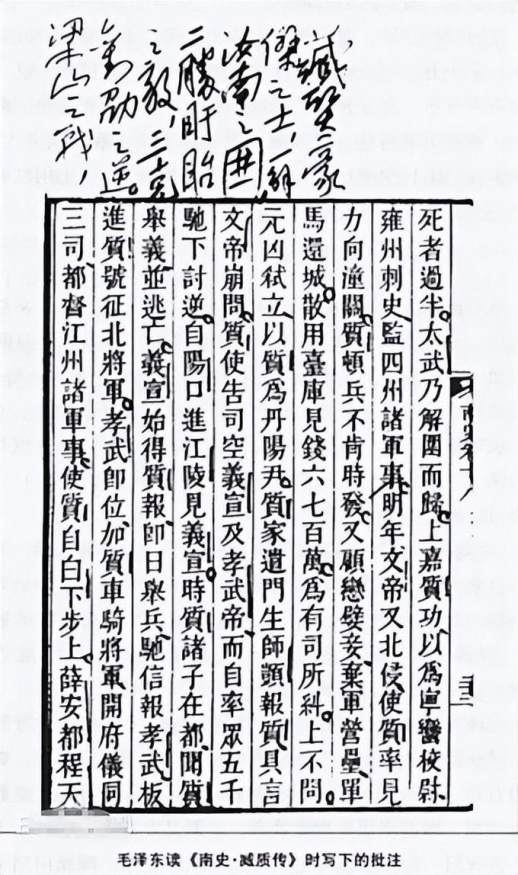 臧質豪
傑之士，一解
汝南之围，
二勝盱眙
之敵，三克
劭之逆。
梁山之战，
死者過半太武乃解圍而歸上嘉質功以爲寧蠻校尉
雍州刺史監四州諸軍事明年文帝又北侵使質率見
力向潼關質頓兵不肯時發又顧戀嬖妾棄軍營壘單
馬還城散用臺庫見錢六七百萬爲有司所糾上不問
元凶弑立以質爲丹陽尹質家遣門生師顗報質具言
文帝崩問質使告司空義宣及孝武帝而自率眾五千
馳下討逆自陽口進江陵見義宣時質諸子在都聞質
舉義並逃亡義宣始得質報即日舉兵馳信報孝武板
進質號征北將軍孝武即位加質車騎將軍開府儀同
三司都督江州諸軍事使質自白下步上薛安都程天
毛泽东读《南史·臧质传》时写下的批注